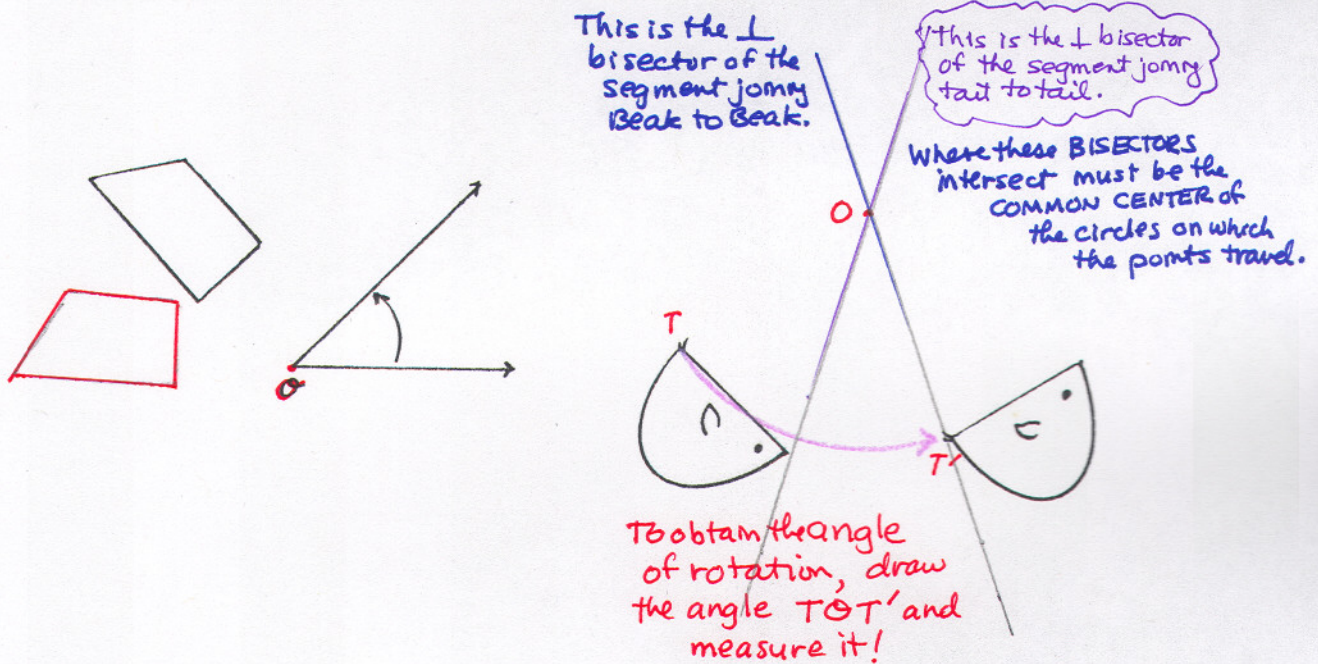 This is the ⊥
bisector of the
segment joining
Beak to Beak.
This is the ⊥ bisector
of the segment joining
tail to tail.
Where these BISECTORS
intersect must be the
COMMON CENTER of
the circles on which
the points travel.
O
O
T
T'
To obtain the angle
of rotation, draw
the angle TOT' and
measure it!